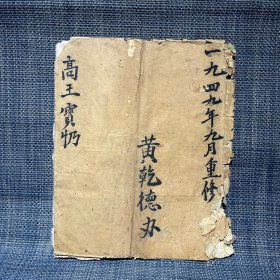 一九四九年九月重修
黄乾德办
高王寶